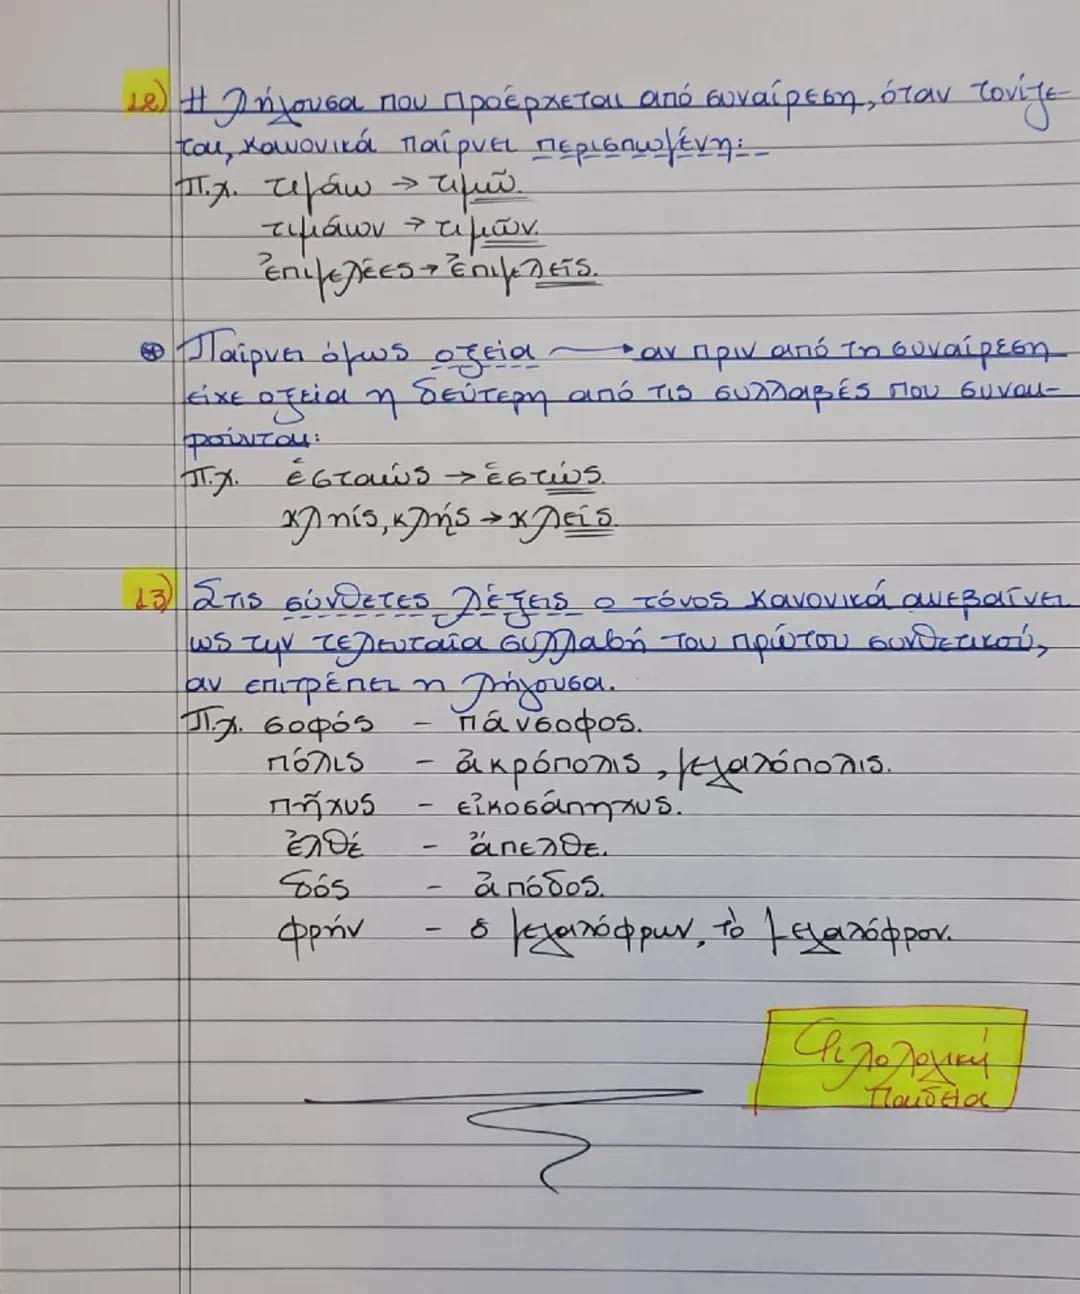 12) Η λήγουσα που προέρχεται από συναίρεση, όταν τονίζε-
ται, κανονικά παίρνει περισπωμένη:
Π.χ. τιμάω → τιμῶ.
τιμάων → τιμῶν.
ἐπιμελέες → ἐπιμελεῖς.
Παίρνει όμως οξεία → αν πριν από τη συναίρεση
είχε οξεία η δεύτερη από τις συλλαβές που συναι-
ρούνται:
Π.χ. ἑσταώς → ἑστώς.
κληίς, κλής → κλείς.
13) Στις σύνθετες λέξεις ο τόνος κανονικά ανεβαίνει
ως την τελευταία συλλαβή του πρώτου συνθετικού,
αν επιτρέπει η λήγουσα.
Π.χ. σοφός - πάνσοφος.
πόλις - ἀκρόπολις, μεγαλόπολις.
πῆχυς - εἰκοσάπηχυς.
ἐλθέ - ἄπελθε.
δός - ἀπόδος.
φρήν - ὁ μεγαλόφρων, τὸ μεγαλόφρον.
Φιλολογική
Παιδεία